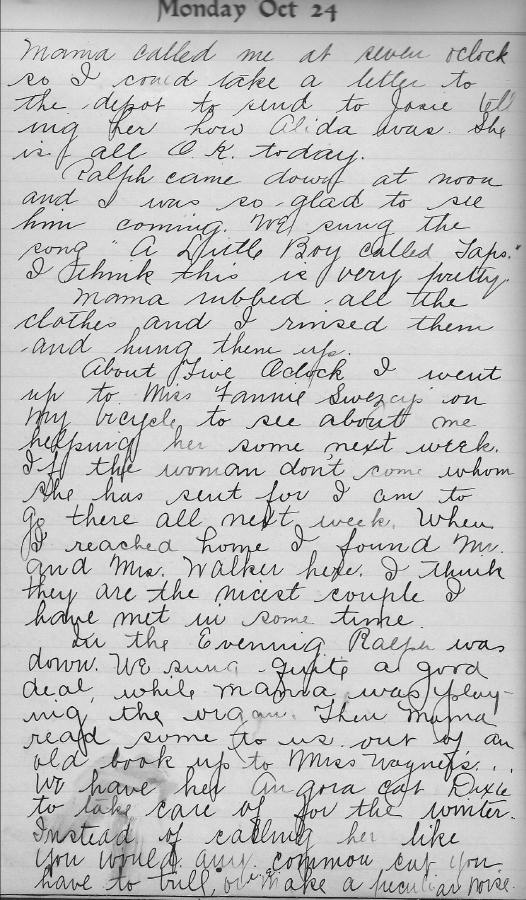 Monday Oct 24
Mama called me at seven oclock
so I could take a letter to
the depot to send to Josie tell
ing her how Alida was. She
is all O.K. today.
Ralph came down at noon
and I was so glad to see
him coming. We sung the
song "A Little Boy called Taps."
I think this is very pretty.
Mama rubbed all the
clothes and I rinsed them
and hung them up.
About Five Oclock I went
up to Miss Fannie Swezeys on
my bicycle to see about me
helping her some next week.
If the woman don't come whom
she has sent for I am to
go there all next week. When
I reached home I found Mr.
and Mrs. Walker here. I think
they are the nicest couple I
have met in some time.
In the Evening Ralph was
down. We sung quite a good
deal, while mama was play-
ing the organ. Then Mama
read some to us out of an
old book up to Miss Wagner's.
We have her Angora cat Dixie
to take care of for the winter.
Instead of calling her like
you would any common cat you
have to trill, or make a peculiar noise.